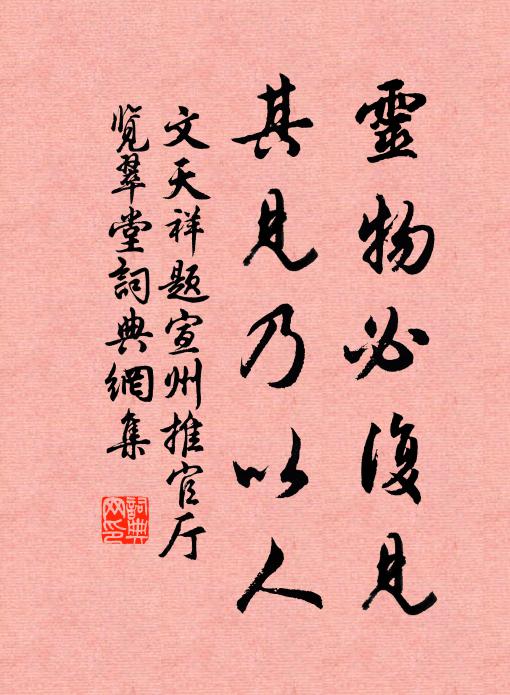 靈物必復見
其見乃以人
文天祥题宣州推官厅
覽翠堂詞典網集
詞典
网印